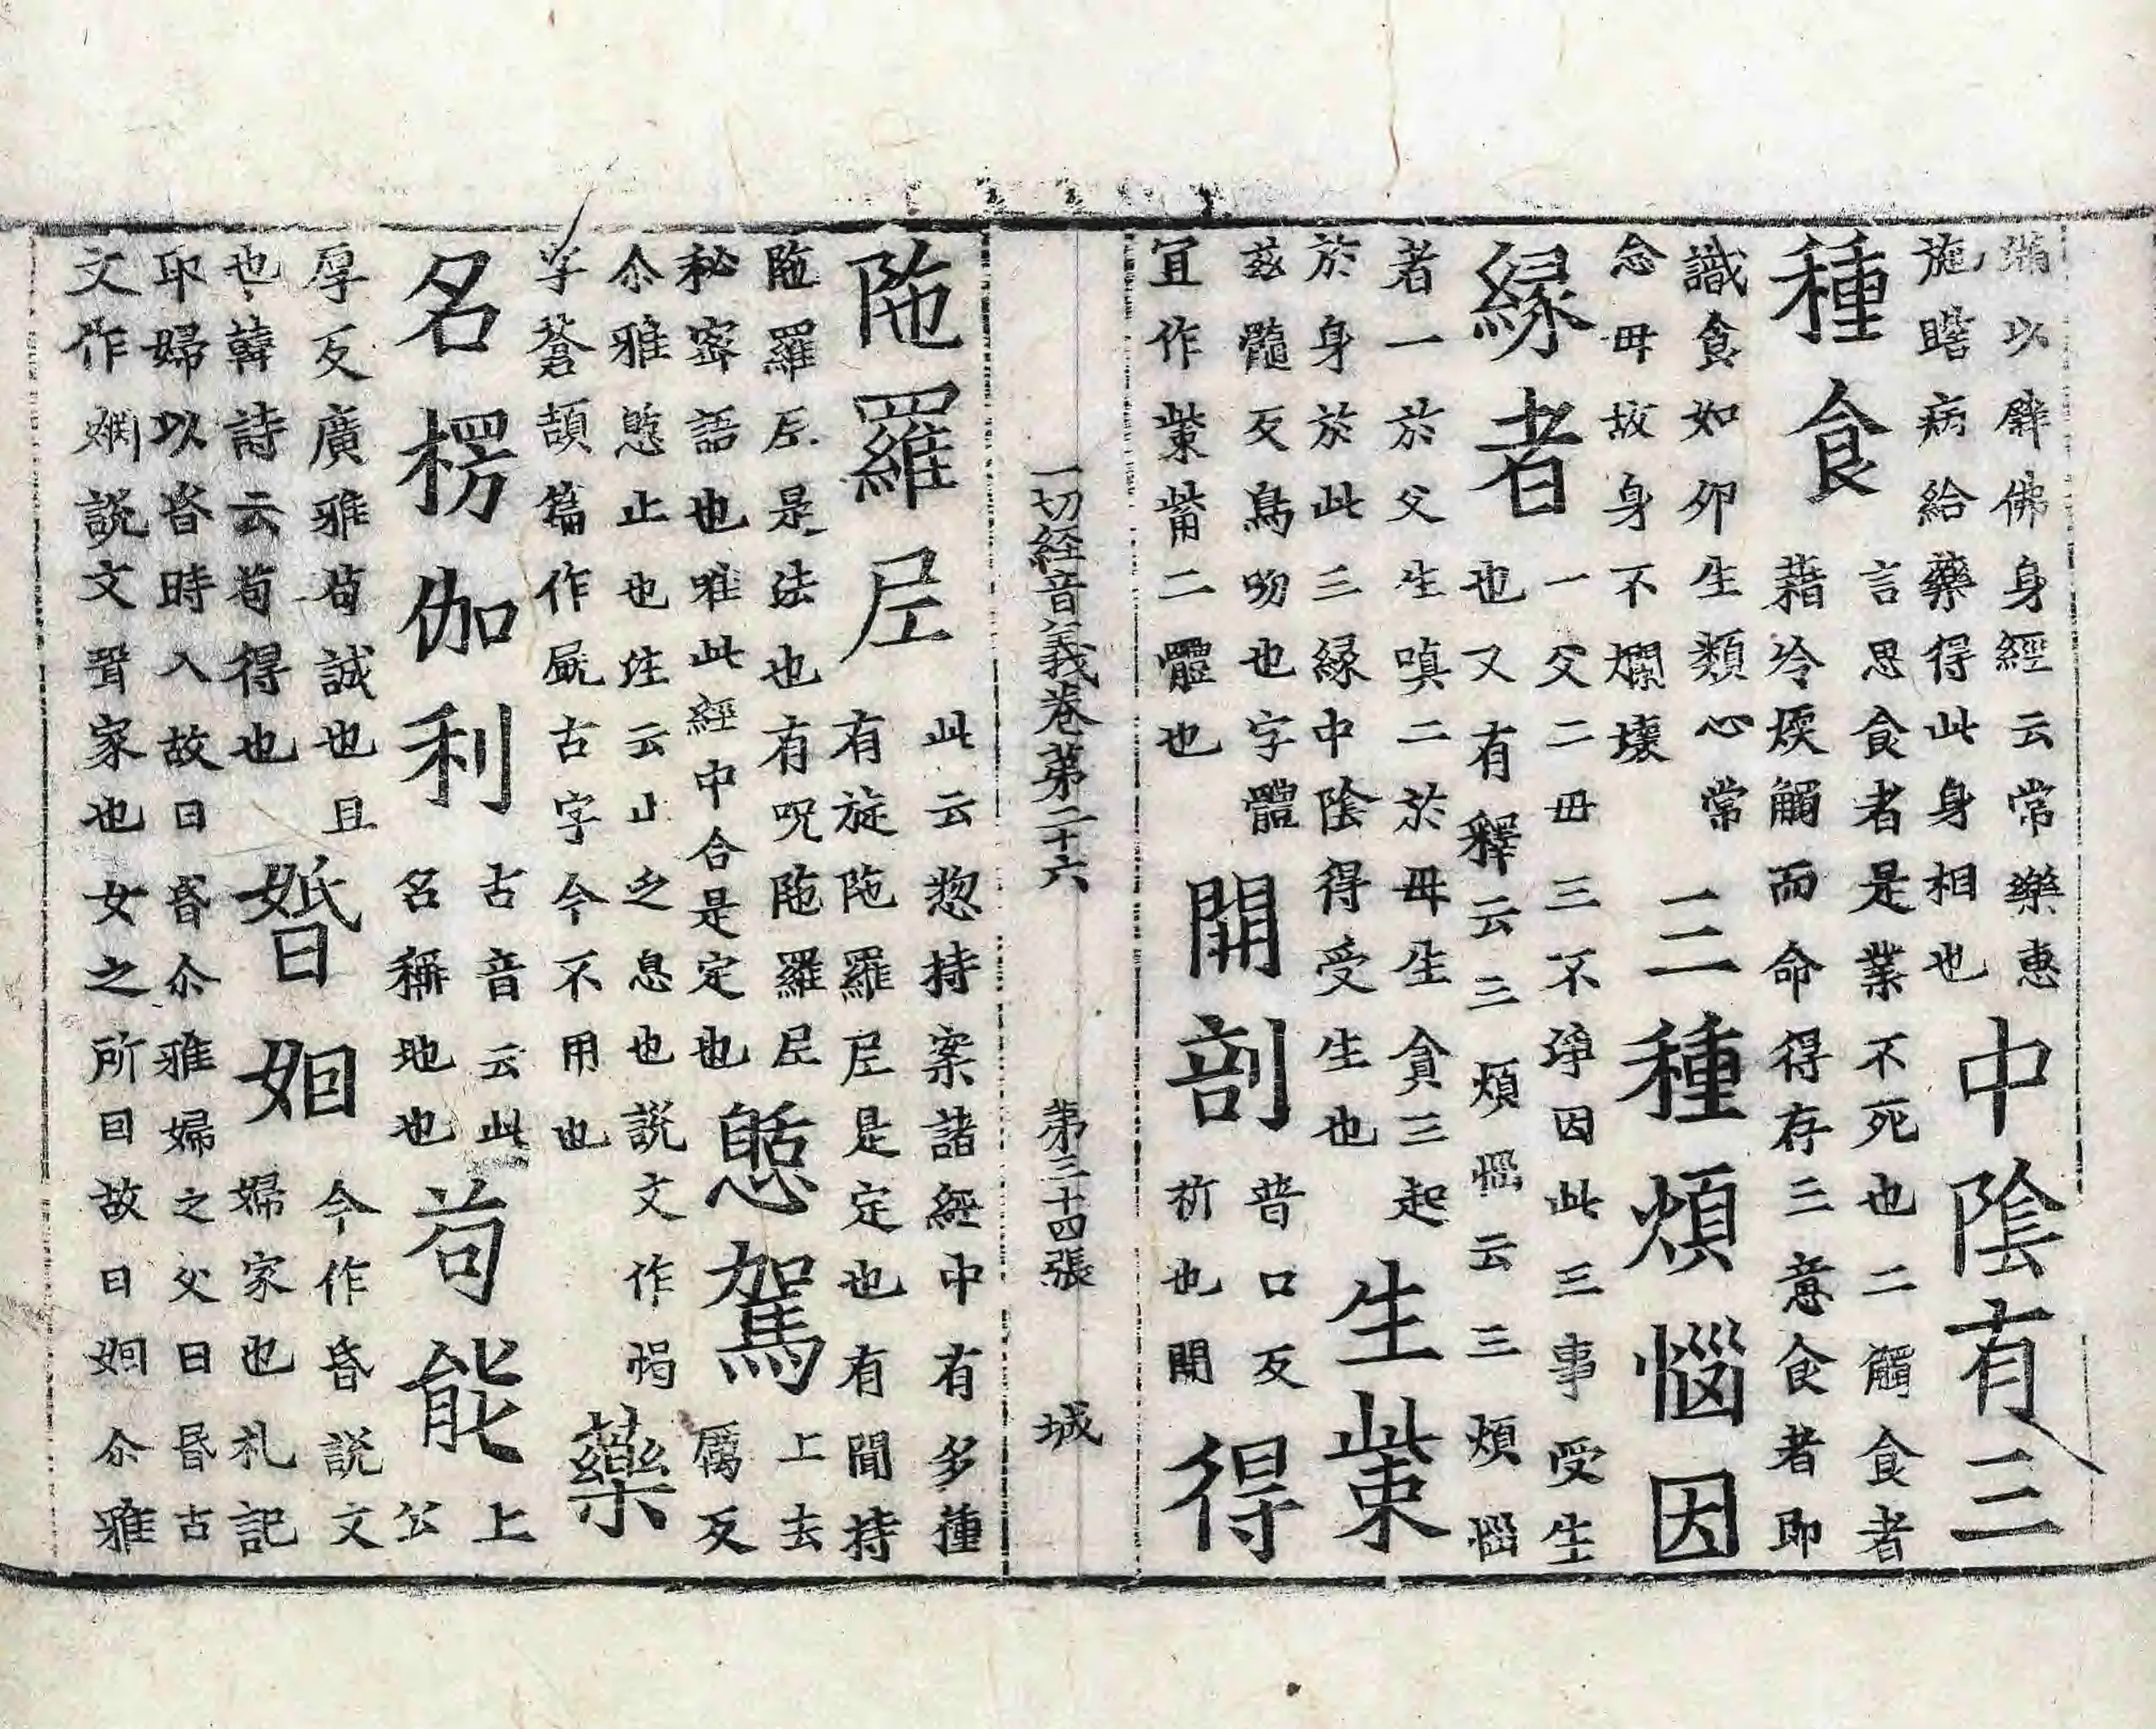 以辟佛身經云常樂惠
施瞎病給藥得此身相也
中陰有三
種食
言思食者是業不死也二觸食者
藉冷煖觸而命得存三意食者即
識食如卵生類心常
念毋故身不爛壞
三種煩惱因
緣者
一父二毋三不淨因此三事受生
也又有釋云三煩惱云三煩惱
者一於父生嗔二於毋生貪三起
於身於此三緣中陰得受生也
生㭰
茲髓反鳥吻也字體
宜作㭰觜二體也
開剖
普口反
析也開
得
一切経音義卷第二十六 第三十四張 城
陁羅尼
此云惣持案諸經中有多種
有旋陁羅尼是定也有聞持
陁羅尼是法也有呪陁羅尼
秘密語也唯此經中合是定也
憩駕
上去
厲反
尒雅憩止也注云止之息也說文作愒
字蒼頡篇作㞃古字今不用也
藥
名楞伽利
古音云此
名稱地也
苟能
上
公
厚反廣雅苟誠也且
也韓詩云苟得也
婚姻
今作昏說文
婦家也礼記
卬婦以昏時入故曰昏尒雅婦之父曰昬古
文作婣說文壻家也女之所因故曰姻尒雅